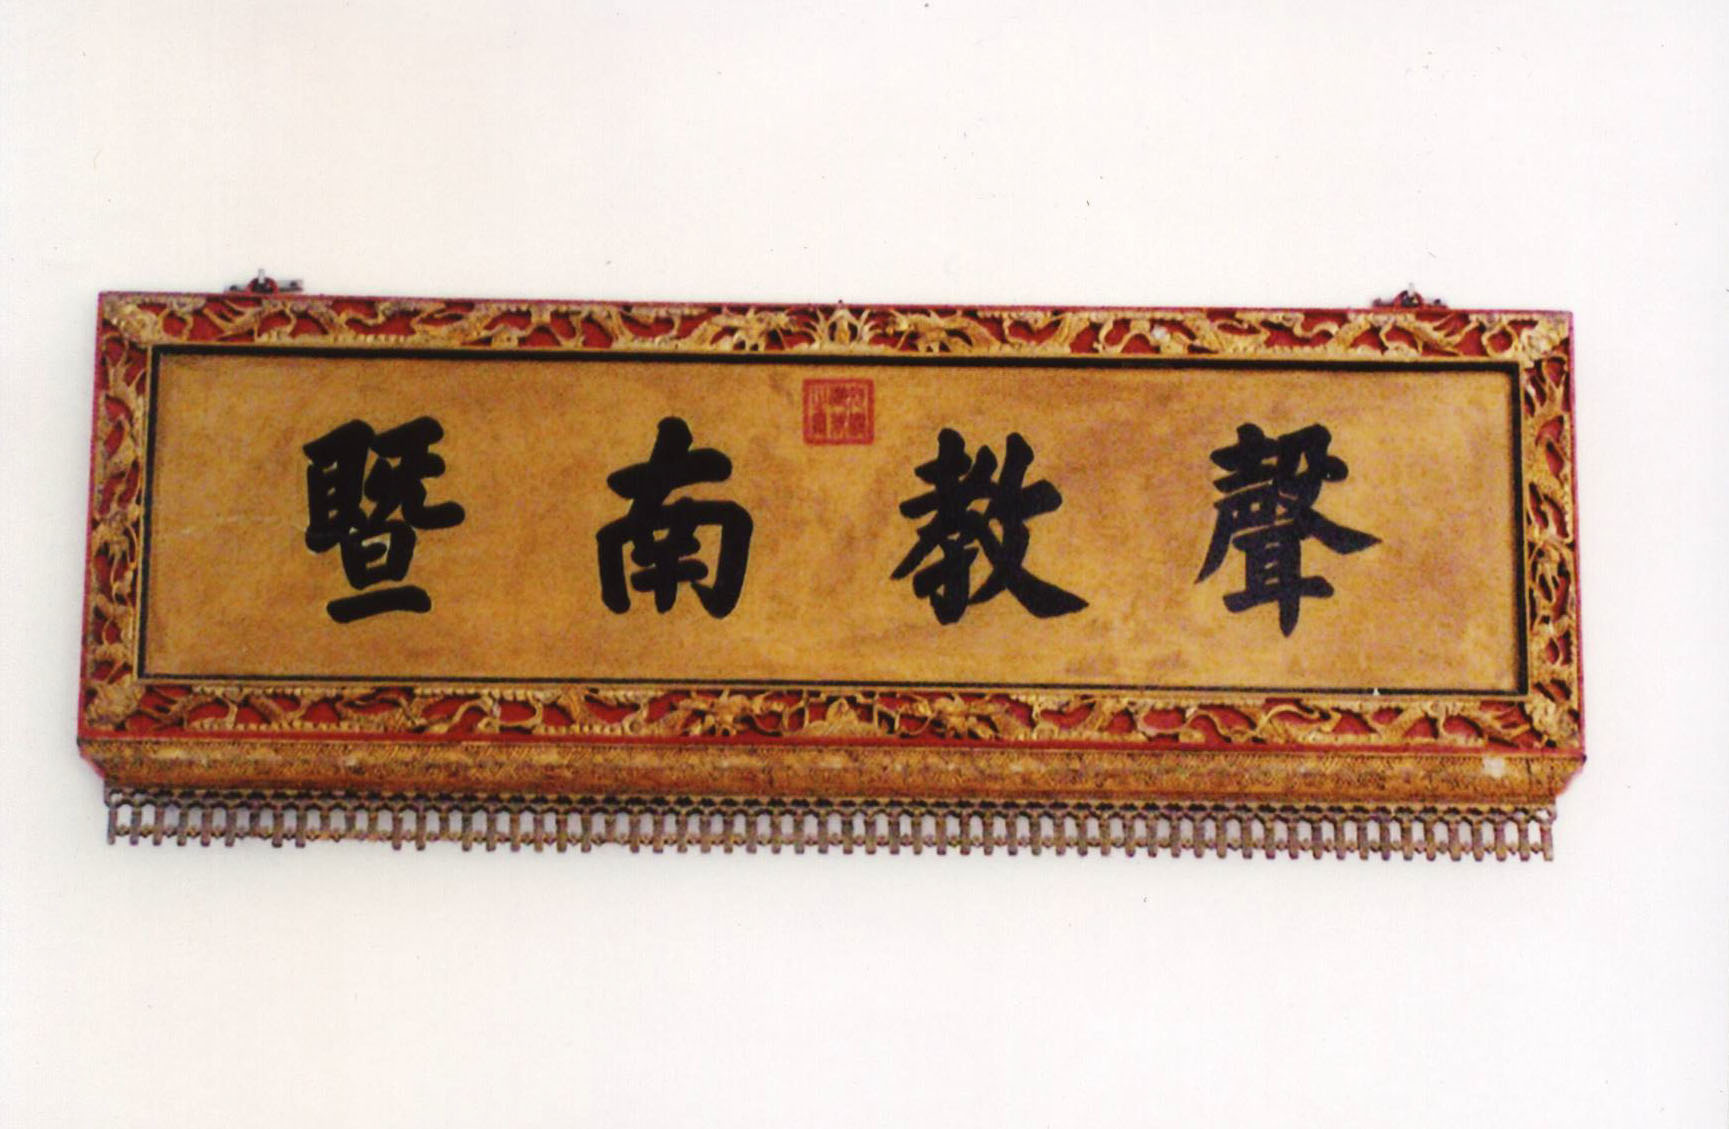 聲教南暨